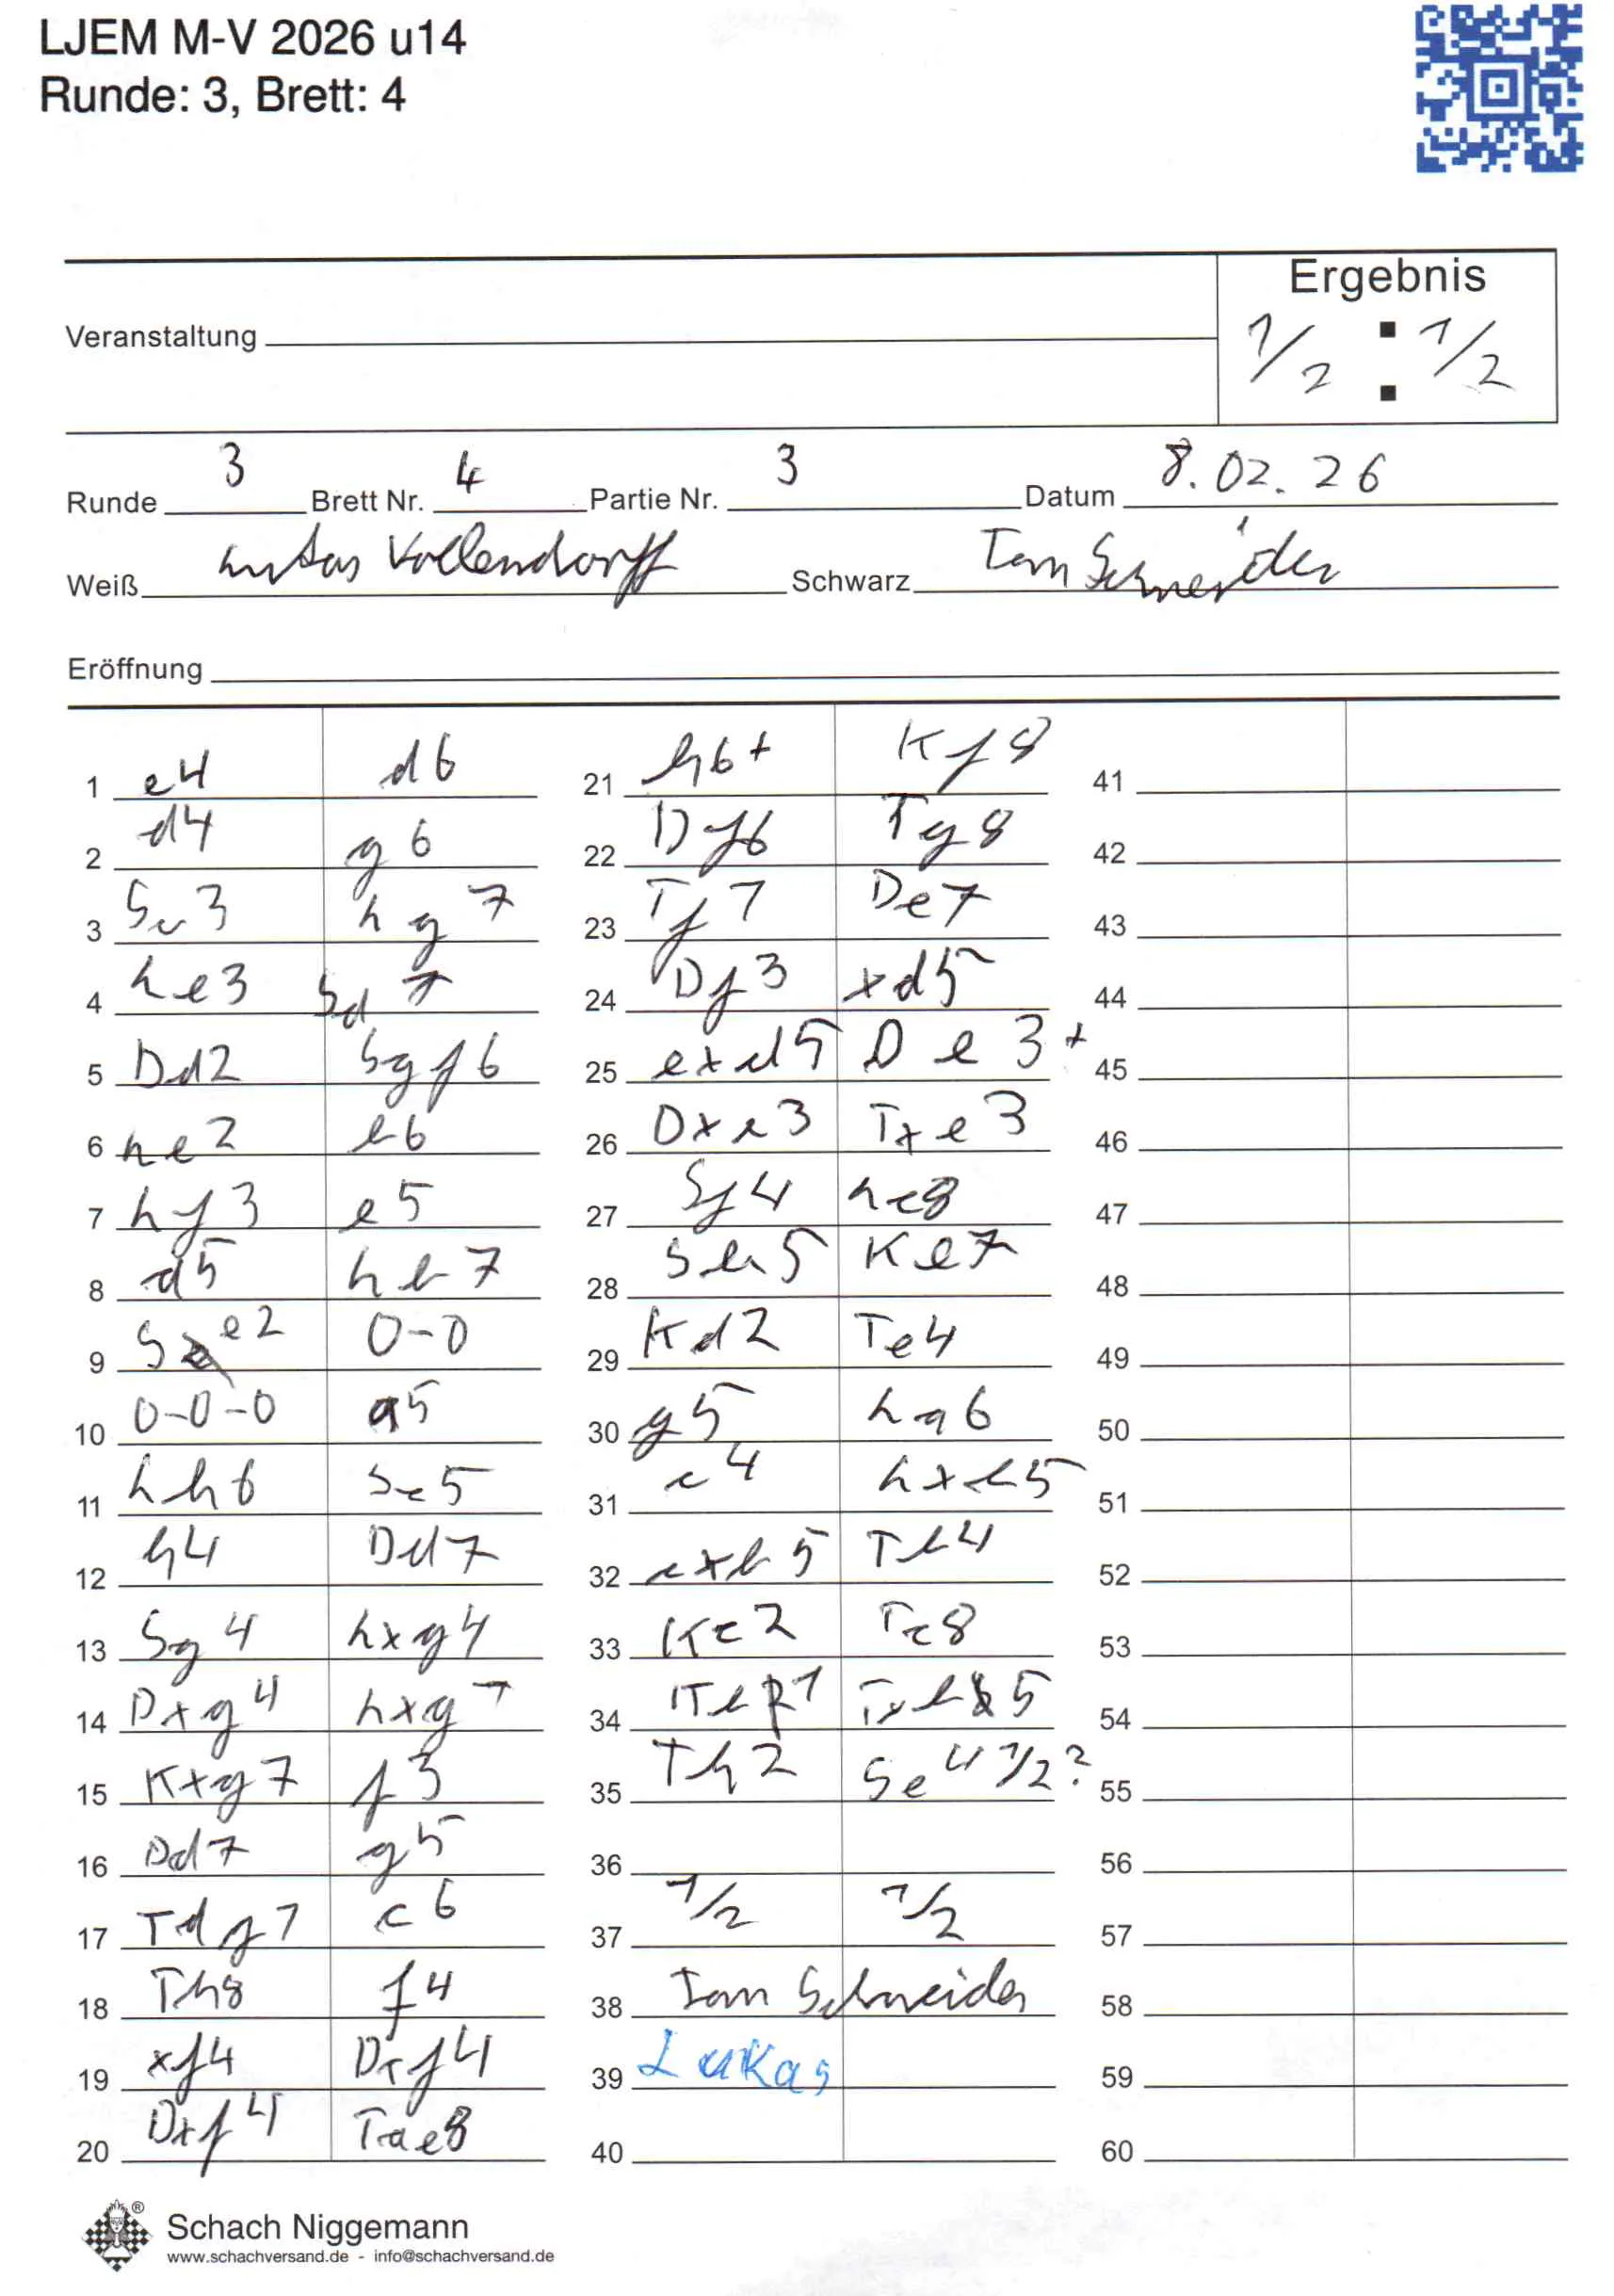 LJEM M-V 2026 u14
Runde: 3, Brett: 4
Ergebnis
Veranstaltung 1/2 : 1/2
Runde 3 Brett Nr. 4 Partie Nr. 3 Datum 8.02.26
Weiß Vollendorff Schwarz Tom Schneider
Eröffnung
1 e4 d6 21 h6+ Kf8 41
2 d4 g6 22 Df6 Tg8 42
3 Sc3 hg7 23 Tf7 De7 43
4 he3 Sd7 24 Df3 xd5 44
5 Dd2 Sgf6 25 exd5 De3+ 45
6 he2 b6 26 Dxe3 Txe3 46
7 hf3 e5 27 Sf4 hc8 47
8 d5 hb7 28 Sh5 Ke7 48
9 Se2 0-0 29 Kd2 Te4 49
10 0-0-0 a5 30 g5 ha6 50
11 hh6 Sc5 31 c4 hxb5 51
12 h4 Dd7 32 cxb5 Tb4 52
13 Sg4 hxg4 33 Kc2 Tc8 53
14 Dxg4 hxg7 34 Txb5 54
15 Kxg7 f3 35 Th2 Se4 1/2? 55
16 Dd7 g5 36 56
17 Tdf1 c6 37 1/2 1/2 57
18 Th8 f4 38 Tom Schneider 58
19 xf4 Dxf4 39 Lukas 59
20 Dxf4 Tae8 40 60
Schach Niggemann
www.schachversand.de - info@schachversand.de